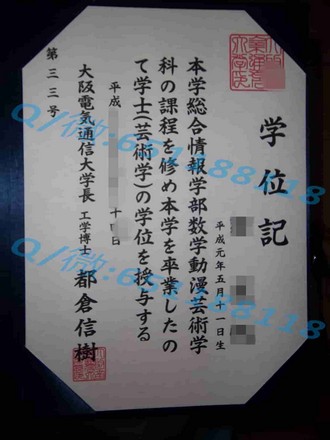 学位記
平成元年五月十一日生
本学総合情報学部数学動漫芸術学
科の課程を修め本学を卒業したの
て学士(芸術学)の学位を授与する
平成
十 日
大阪電気通信大学長 工学博士 都倉信樹
第三三号
Q/微:661188118
Q/微:661188118